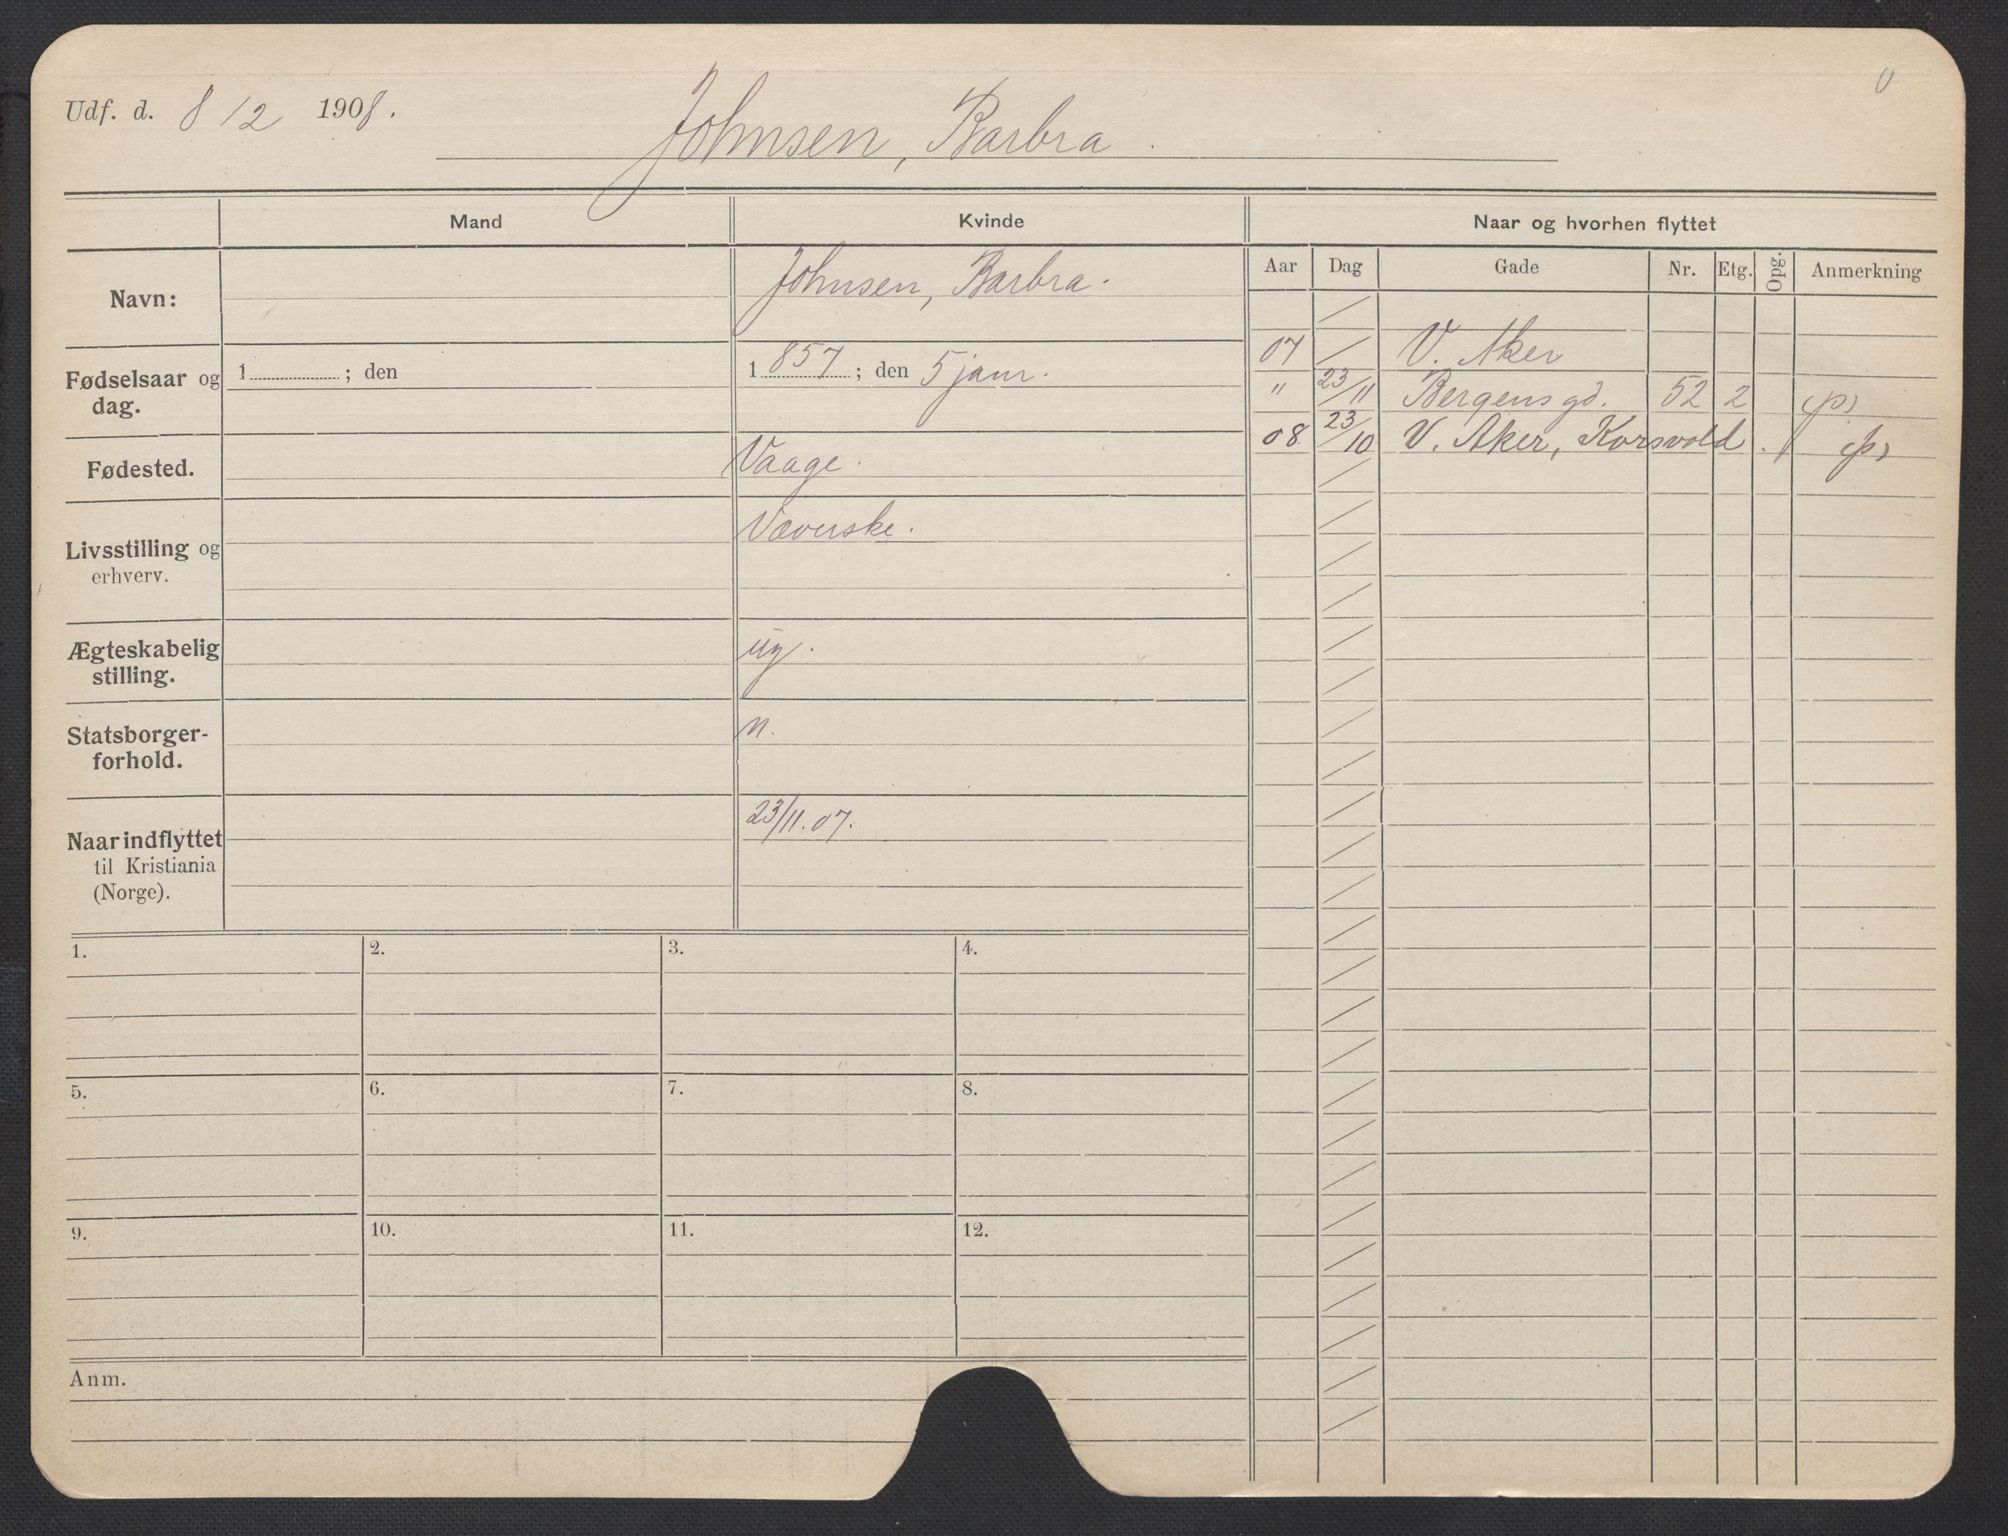 Udf. d. 8/12 1908.
Johnsen, Barbra.
Mand
Kvinde
Naar og hvorhen flyttet
Aar Dag Gade Nr. Etg. Opg. Anmerkning
Navn:
Johnsen, Barbra.
Fødselsaar og dag.
1 ; den
1857; den 5 janr.
Fødested.
Vaage.
Livsstilling og erhverv.
Væverske.
Ægteskabelig stilling.
ug.
Statsborgerforhold.
n.
Naar indflyttet til Kristiania (Norge).
23/11.07.
07 / V. Aker
" 23/11 Bergensgd. 52 2 (p)
08 23/10 V. Aker, Korsvold. / (p)
1. 2. 3. 4.
5. 6. 7. 8.
9. 10. 11. 12.
Anm.